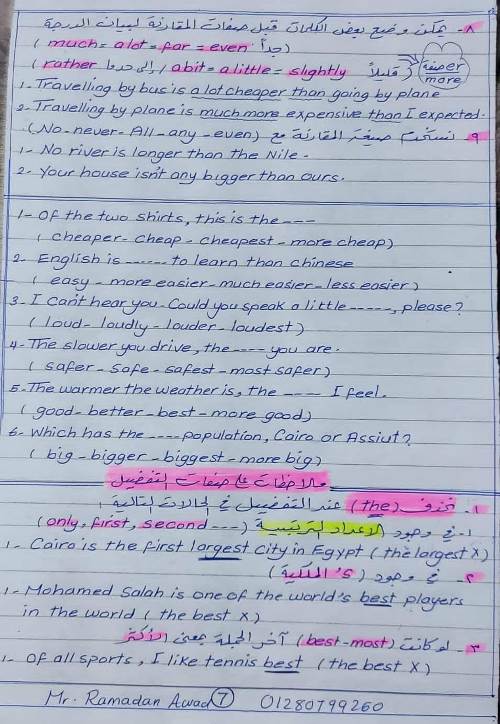 ٨- يمكن وضع بعض الكلمات قبل صفات المقارنة لبيان الدرجة
( much = a lot = far = even جداً )
( rather إلى حد ما / a bit = a little = slightly قليلاً ) صفة er more
1- Travelling by bus is a lot cheaper than going by plane
2- Travelling by plane is much more expensive than I expected.
٩- نستخدم صيغة المقارنة مع (No - never - All - any - even)
1- No river is longer than the Nile.
2. Your house isn't any bigger than ours.
1- Of the two shirts, this is the ----
( cheaper - cheap - cheapest - more cheap)
2- English is ...... to learn than chinese
( easy - more easier - much easier - less easier)
3- I can't hear you. Could you speak a little -----, please?
( loud - loudly - louder - loudest )
4- The slower you drive, the ---- you are.
( safer - safe - safest - most safer )
5- The warmer the weather is, the ---- I feel.
( good - better - best - more good)
6- Which has the ---- population, Cairo or Assiut?
( big - bigger - biggest - more big)
ملاحظات على صفات التفضيل
١- تحذف (the) عند التفضيل في الحالات التالية :
١- في وجود الاعداد الترتيبية (only, first, second ---)
1- Cairo is the first largest city in Egypt ( the largest X)
٢- في وجود ( 's الملكية )
1- Mohamed Salah is one of the world's best players
in the world ( the best X )
٣- لو كانت (best-most) آخر الجملة بمعنى الأكثر
1- Of all sports, I like tennis best ( the best X )
Mr. Ramadan Awad 7 01280799260